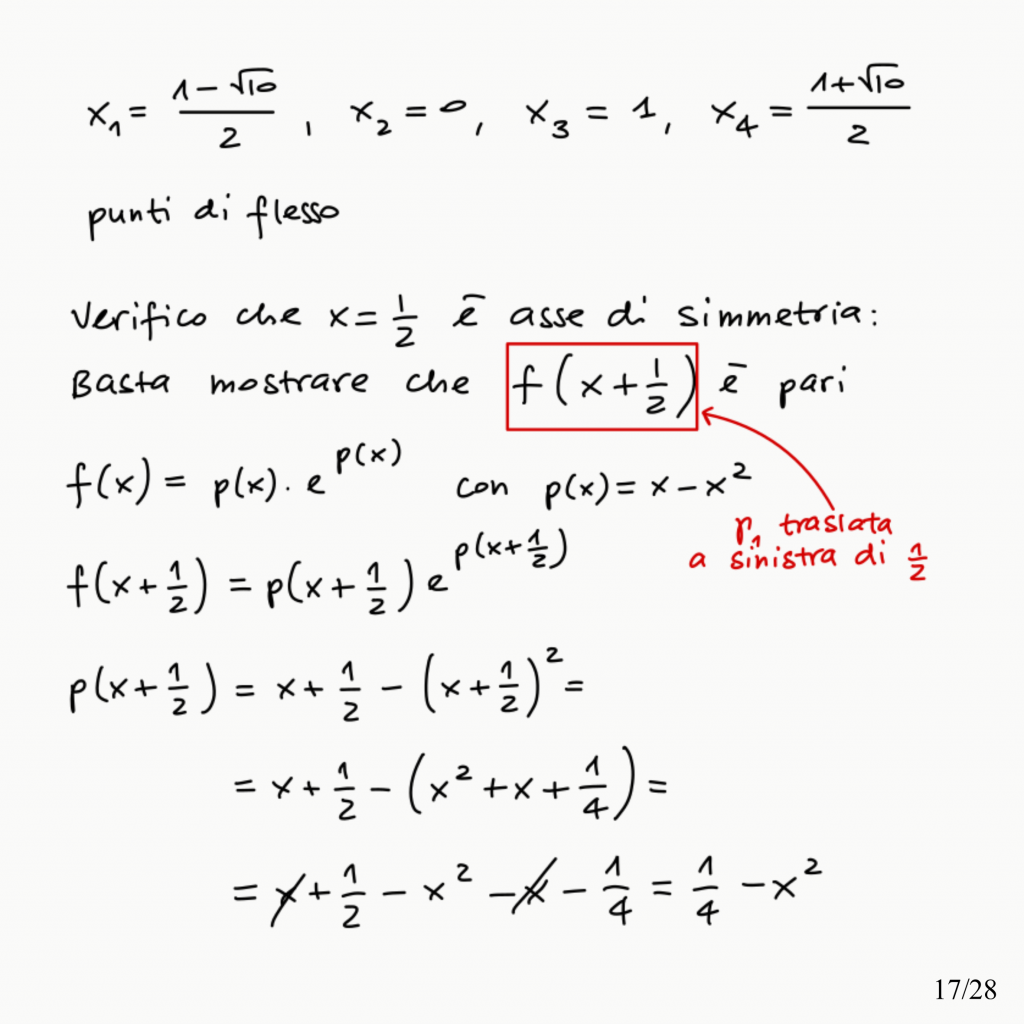 x₁ = (1 − √10)/2 , x₂ = 0, x₃ = 1, x₄ = (1+√10)/2
punti di flesso
Verifico che x = 1/2 ē asse di simmetria:
Basta mostrare che f(x + 1/2) ē pari
f(x) = p(x) · e^p(x) con p(x) = x − x²
γ₁ traslata
a sinistra di 1/2
f(x + 1/2) = p(x + 1/2) e^p(x + 1/2)
p(x + 1/2) = x + 1/2 − (x + 1/2)² =
= x + 1/2 − (x² + x + 1/4) =
= x + 1/2 − x² − x − 1/4 = 1/4 − x²
17/28